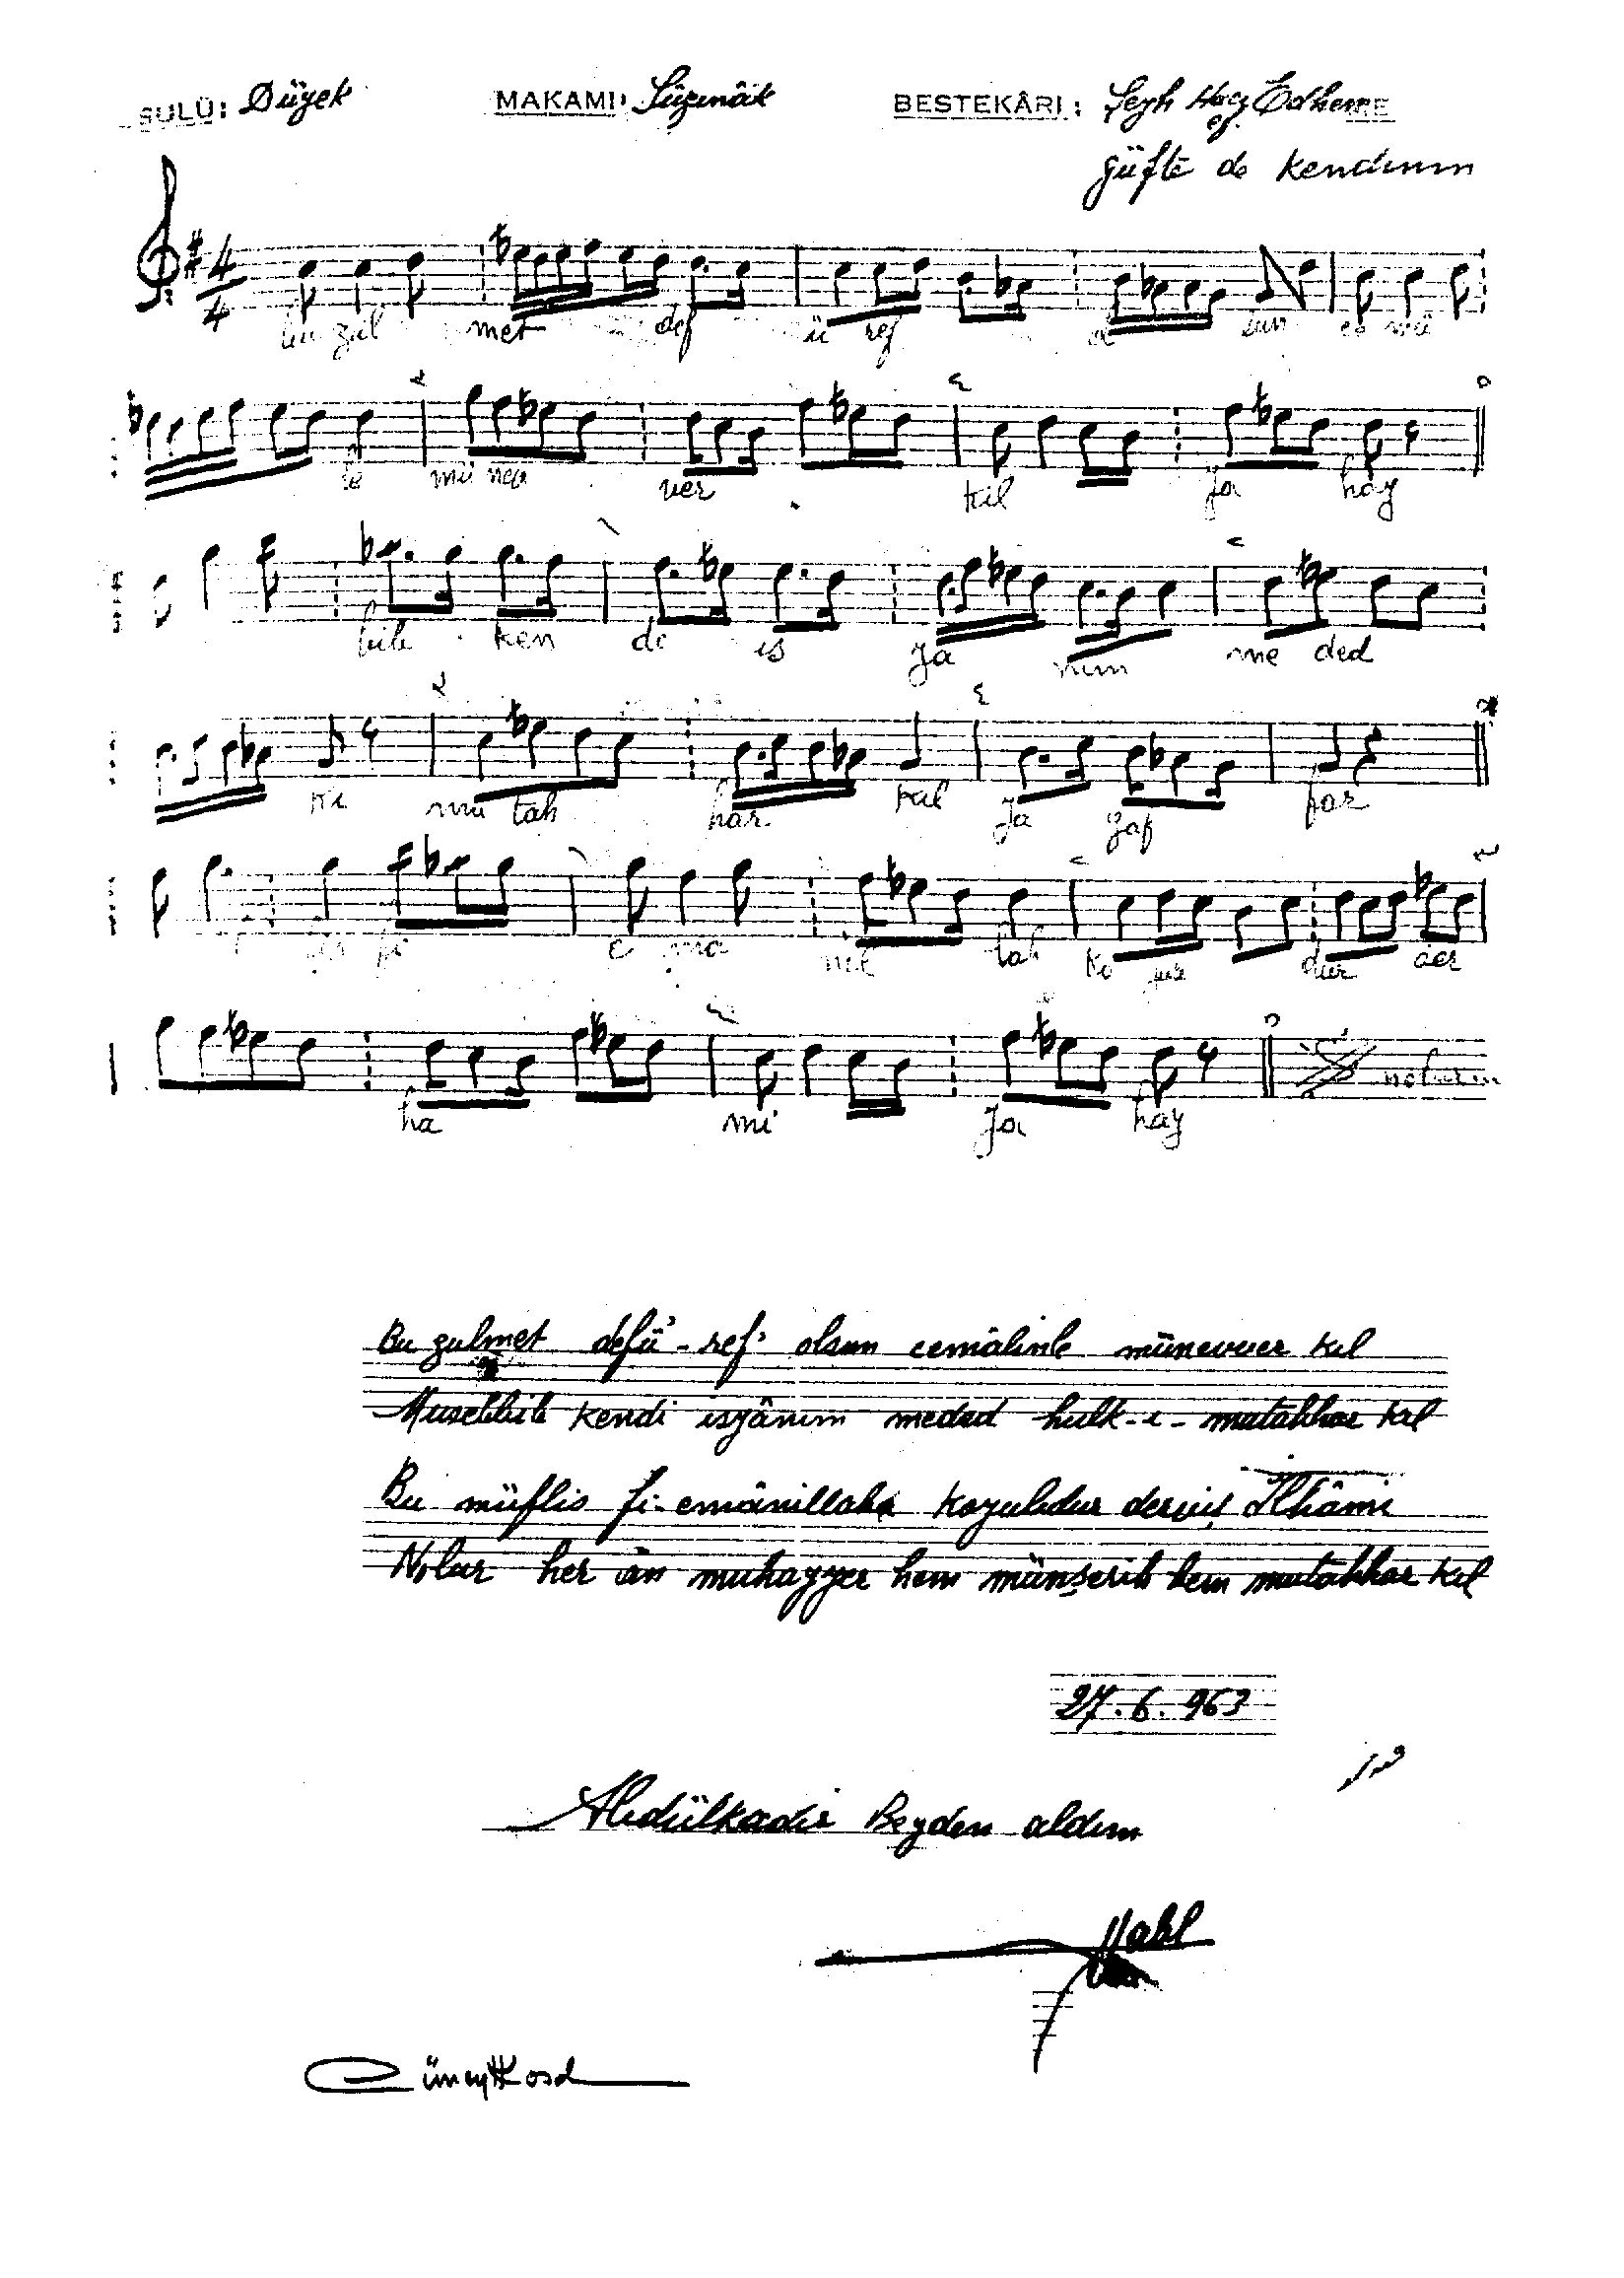 SULÜ: Düyek MAKAMI: Sûzınâk BESTEKÂRI: Şeyh Hacı Edhem ef.
güfte de kendinin
4 4
zul met def ü ref sun
le mü nev ver kıl Ja hay
bib ken di is ya nım me ded
ki mu tah har kıl Ja gaf far
fi e ma nil lah ko yu dur der
ha mi Ja hay
Bu zulmet defü'-ref' olsun cemâlinle münevver kıl
Musebbib kendi isyânım meded hulk-ı-mutahhar kıl
Bu müflis fi-emânillaha koyuludur derviş İlhâmi
Nolur her ân muhayyer hem münşerih hem mutahhar kıl
27.6.963
Abdülkadir Beyden aldım
Cüneyt Kosal